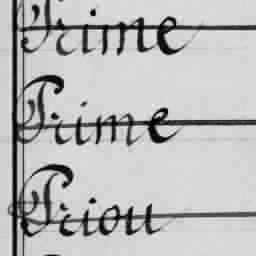 Prime
Prime
Priou